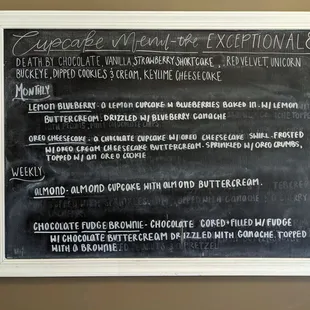 Cupcake Menu - the EXCEPTIONAL 8
DEATH BY CHOCOLATE, VANILLA, STRAWBERRY SHORTCAKE, RED VELVET, UNICORN
BUCKEYE, DIPPED COOKIES & CREAM, KEY LIME CHEESECAKE
MONTHLY
LEMON BLUEBERRY - A LEMON CUPCAKE W/ BLUEBERRIES BAKED IN. W/ LEMON
BUTTERCREAM, DRIZZLED W/ BLUEBERRY GANACHE
OREO CHEESECAKE - A CHOCOLATE CUPCAKE W/ OREO CHEESECAKE SWIRL. FROSTED
W/ OREO CREAM CHEESECAKE BUTTERCREAM. SPRINKLED W/ OREO CRUMBS,
TOPPED W/ AN OREO COOKIE
WEEKLY
ALMOND - ALMOND CUPCAKE WITH ALMOND BUTTERCREAM.
CHOCOLATE FUDGE BROWNIE - CHOCOLATE CORED + FILLED W/ FUDGE
W/ CHOCOLATE BUTTERCREAM DRIZZLED WITH GANACHE. TOPPED
WITH A BROWNIE.